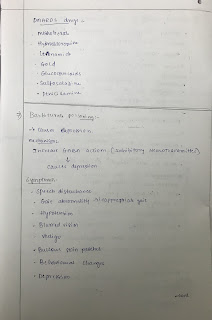 DMARDs drugs -
- Methotrexate
- Hydroxychloroquine
- Leflunomide
- Gold
- Glucocorticoids
- Sulfasalazine
- Penicillamine
Barbiturate poisoning -
→ Causes depression
Mechanism
Increase GABA actions (inhibitory neurotransmitter)
↓
causes depression
Symptoms
- Speech disturbance
- Gait abnormality
- Hypotension
- Blurred vision
- Vertigo
- Bullous skin patches
- Behavioural changes
- Depression